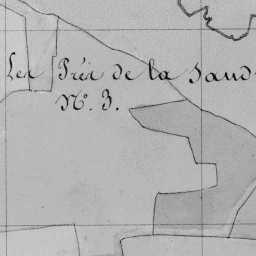 Les Préz de la Sand
N.° 3.